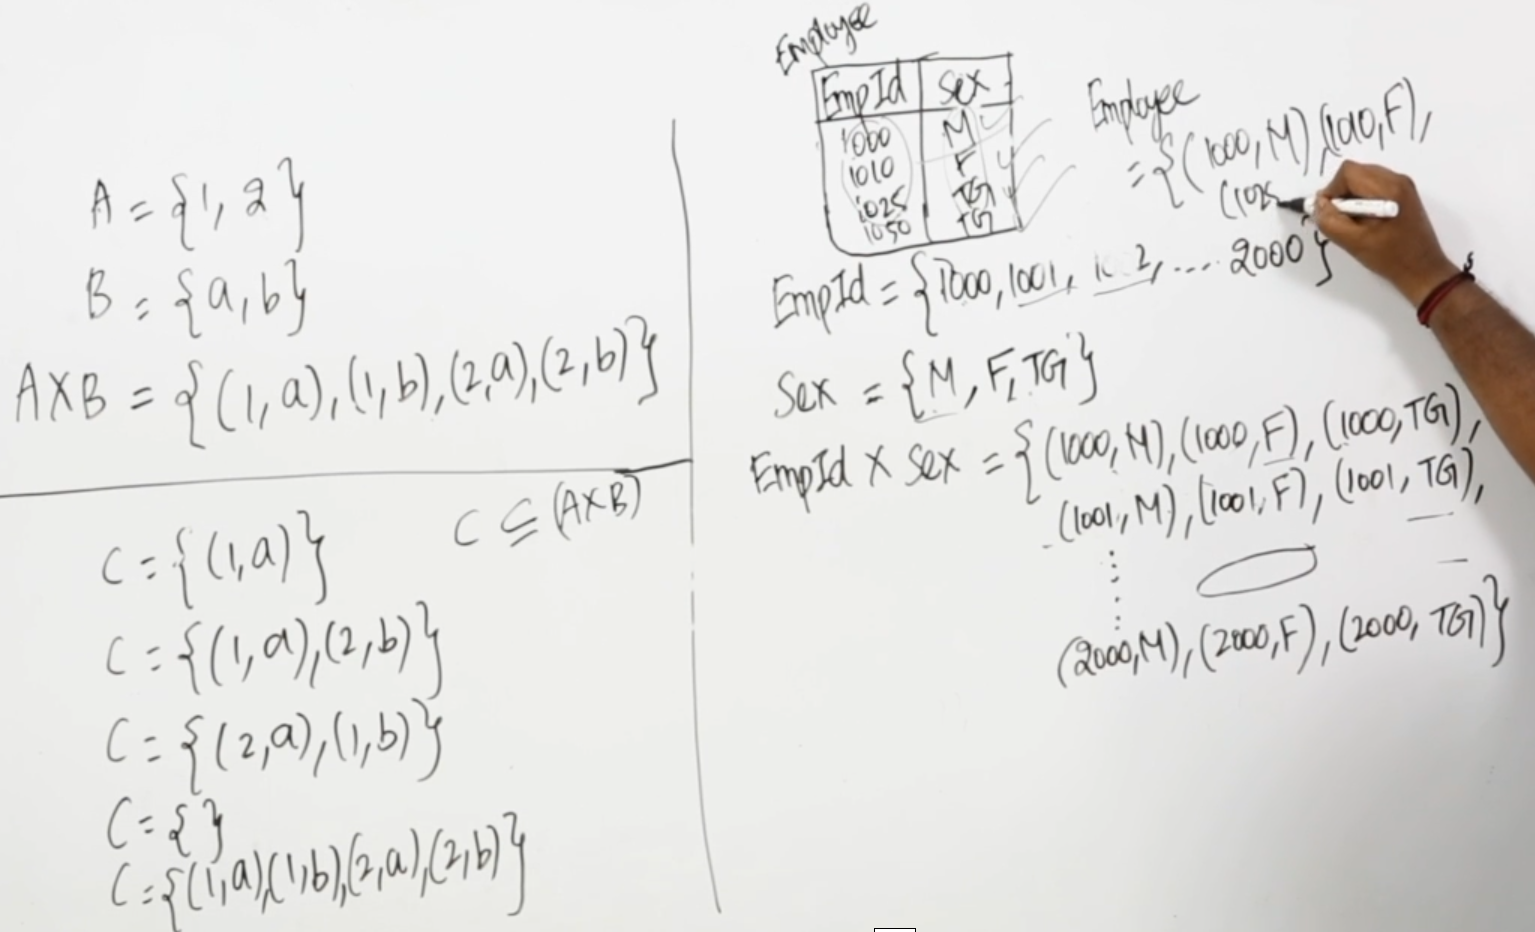 A = {1, 2}
B = {a, b}
A X B = {(1, a), (1, b), (2, a), (2, b)}
C ⊆ (A X B)
C = {(1, a)}
C = {(1, a), (2, b)}
C = {(2, a), (1, b)}
C = { }
C = {(1, a), (1, b), (2, a), (2, b)}
Employee
EmpId Sex
1000 M
1010 F
1025 TG
1050 TG
Employee
= {(1000, M), (1010, F),
(1025
EmpId = {1000, 1001, 1002, .... 2000}
Sex = {M, F, TG}
EmpId X Sex = {(1000, M), (1000, F), (1000, TG),
(1001, M), (1001, F), (1001, TG),
(2000, M), (2000, F), (2000, TG)}